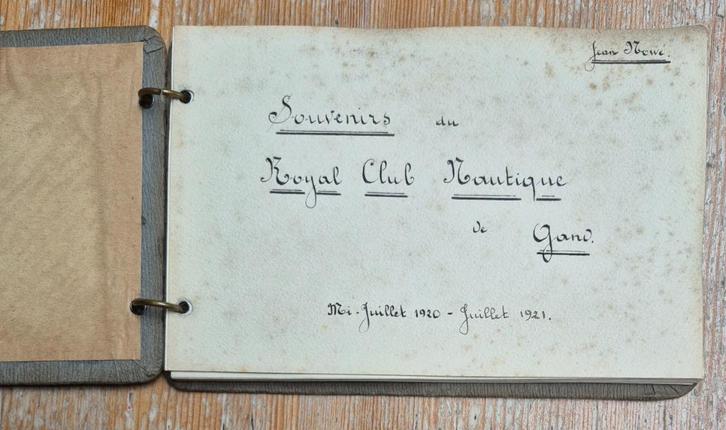 Jean Nowé.
Souvenirs du
Royal Club Nautique
de Gand.
Mi-Juillet 1920 - Juillet 1921.